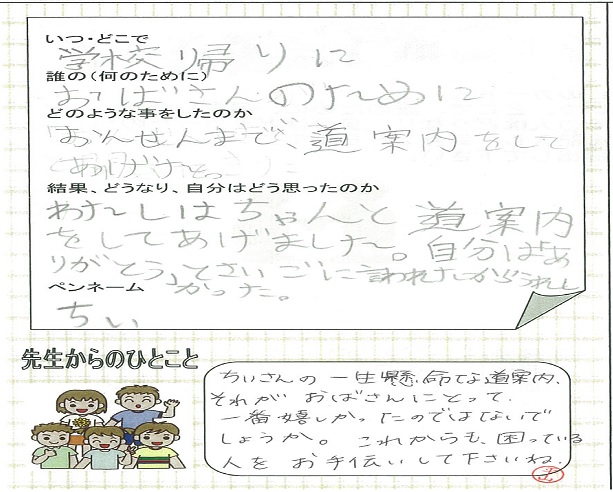 いつ・どこで
学校帰りに
誰の(何のために)
おばさんのために
どのような事をしたのか
おんせんまで、道案内をして
あげた
結果、どうなり、自分はどう思ったのか
わたしはちゃんと道案内
をしてあげました。自分は「あ
りがとう」とさいごに言われたからうれし
ペンネーム かった。
ちぃ
先生からのひとこと
ちぃさんの一生懸命な道案内、
それがおばさんにとって、
一番嬉しかったのではないで
しょうか。これからも、困っている
人をお手伝いして下さいね。